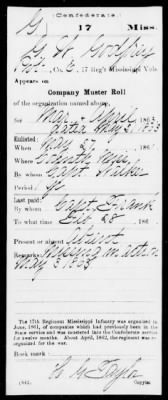 (Confederate.)
G 17 Miss.
G W Godfrey
Pvt, Co. E, 17 Reg't Mississippi Vols.
Appears on
Company Muster Roll
of the organization named above,
for Mar & April, 1863
dated May 3, 1863
Enlisted:
When May 27, 186
Where Corinth Miss
By whom Capt
Period
Last paid:
By whom Capt
To what time Feb 28, 186
Present or absent Absent
Remarks: Missing in action
May 3 1863
The 17th Regiment Mississippi Infantry was organized in
June, 1861, of companies which had previously been in the
State service and was mustered into the Confederate service
for twelve months. About April, 1862, the regiment was re-
organized for the war.
Book mark:
(642)
Copyist.